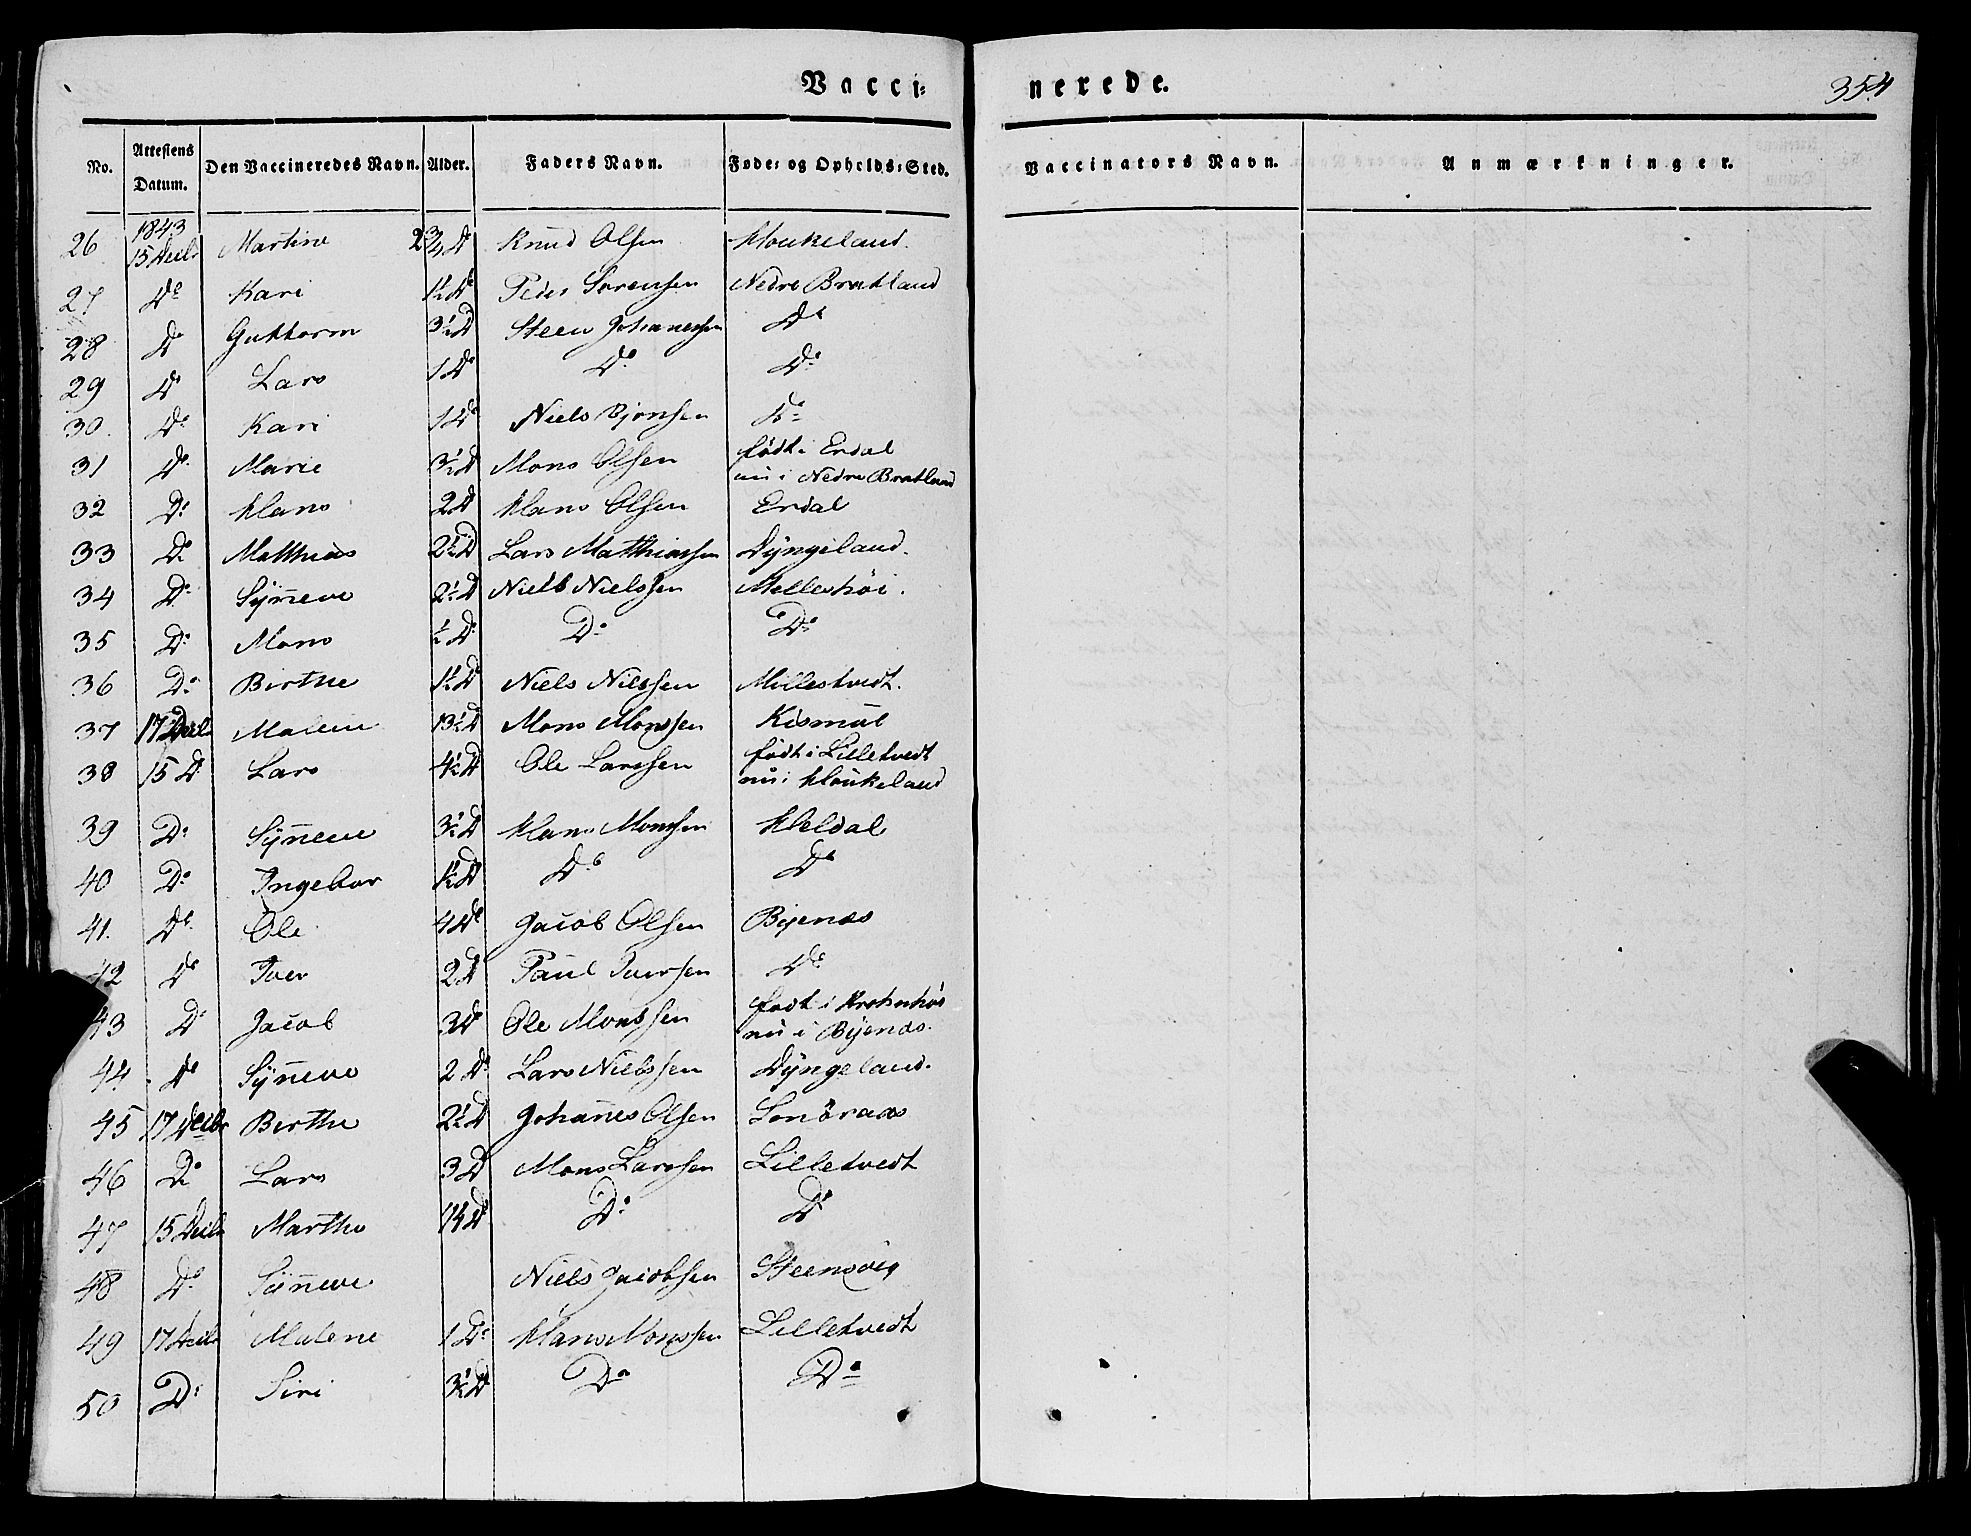 Vacci= nerede. 354
No. Attestens Datum. Den Vaccineredes Navn. Alder. Faders Navn. Føde= og Opholds=Sted. Vaccinators Navn. Anmærkninger.
1843
26 15 Decbr Martine 2¾ Do Knud Olsen Houkeland.
27 Do Kari 1½ Do Peder Sørensen Nedre Bratland
28 Do Guttorm 3½ Do Steen Johannessen Do
29 Do Lars 1 Do Do Do
30. Do Kari 1 Do Niels Bjønsen Do
31 Do Marie 3½ Do Mons Olsen født i Erdal
nu i Nedre Bratland
32 Do Hans 2 Do Hans Olsen Erdal
33 Do Matthias 2½ Do Lars Mathiassen Dyngeland.
34 Do Syn̄eve 2½ Do Niels Nielssen Helleshøi.
35 Do Mons ½ Do Do Do
36 Do Birthe 1½ Do Niels Nilssen Millestvedt.
37 17 Decbr Malene 13½ Do Mons Monssen Kismul
38 15 Do Lars 4½ Do Ole Larssen født i Lilletvedt
nu i Houkeland
39 Do Syn̄eve 3½ Do Hans Monssen Heldal
40 Do Ingebor 1½ Do Do Do
41. Do Ole 4 Do Jacob Olsen Birjenæs
42 Do Iver 2 Do Paul Iversen Do
43 Do Jacob 3 Do Ole Monssen født i Krohnhøi
nu i Birjenæs.
44 Do Syn̄eve 2 Do Lars Nielssen Dyngeland.
45 17 Decbr Berthe 2½ Do Johan̄es Olsen
46 Do Lars 3 Do Mons Larssen Lilletvedt
47 15 Decbr Marthe 1¼ Do Do Do
48 Do Syn̄eve Niels Jacobsen Steensvig
49 17 Decbr Malene 1 Do Hans Monssen Lilletvedt
50 Do Siri 3½ Do Do Do